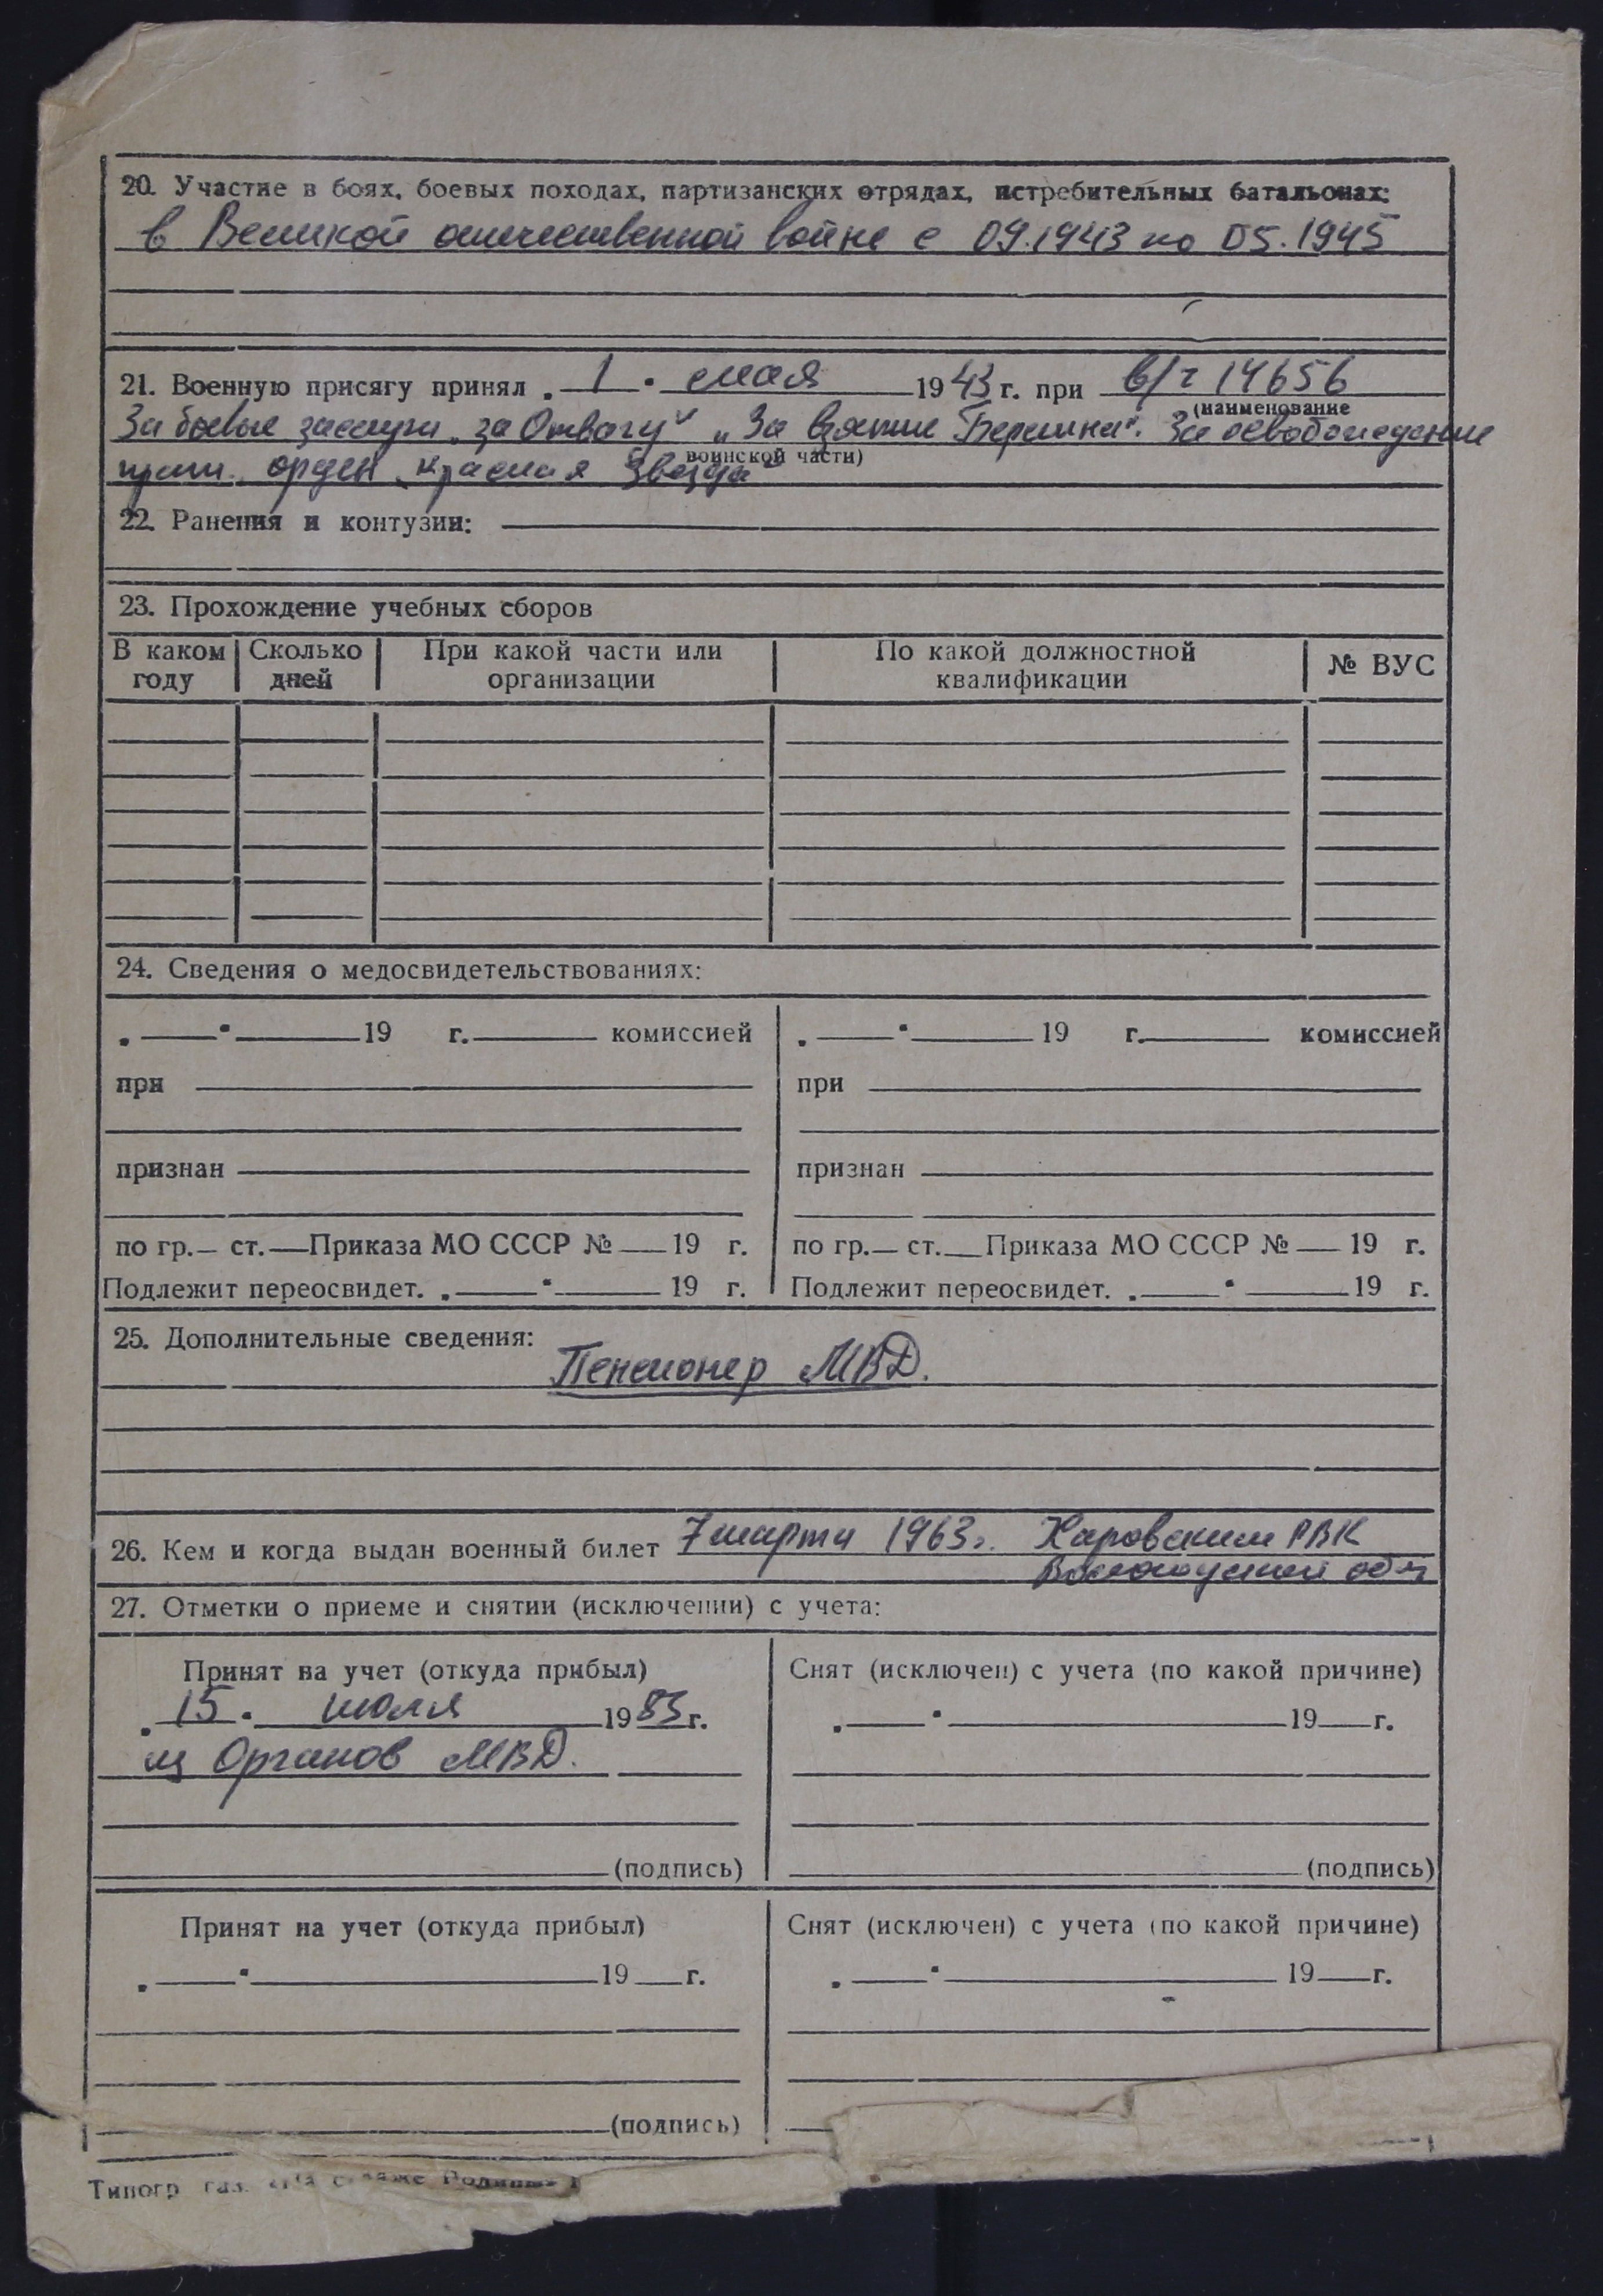 20. Участие в боях, боевых походах, партизанских отрядах, истребительных батальонах:
в Великой отечественной войне с 09.1943 по 05.1945
21. Военную присягу принял „ 1 " мая 1943 г. при в/ч 14656
(наименование
За боевые заслуги „за Отвагу" „За взятие Берлина". За освобождение
воинской части)
орден „Красная Звезда"
22. Ранения и контузии:
23. Прохождение учебных сборов
В каком году | Сколько дней | При какой части или организации | По какой должностной квалификации | № ВУС
24. Сведения о медосвидетельствованиях:
„ " 19 г. комиссией „ " 19 г. комиссией
при при
признан признан
по гр. ст. Приказа МО СССР № 19 г. по гр. ст. Приказа МО СССР № 19 г.
Подлежит переосвидет. „ " 19 г. Подлежит переосвидет. „ " 19 г.
25. Дополнительные сведения:
Пенсионер МВД.
26. Кем и когда выдан военный билет 7 марта 1963 г. Харовским РВК
Вологодской обл
27. Отметки о приеме и снятии (исключении) с учета:
Принят на учет (откуда прибыл) Снят (исключен) с учета (по какой причине)
„ 15 " июля 1983 г. „ " 19 г.
из Органов МВД.
(подпись) (подпись)
Принят на учет (откуда прибыл) Снят (исключен) с учета (по какой причине)
„ " 19 г. „ " 19 г.
(подпись)
Типогр. газ. Родины